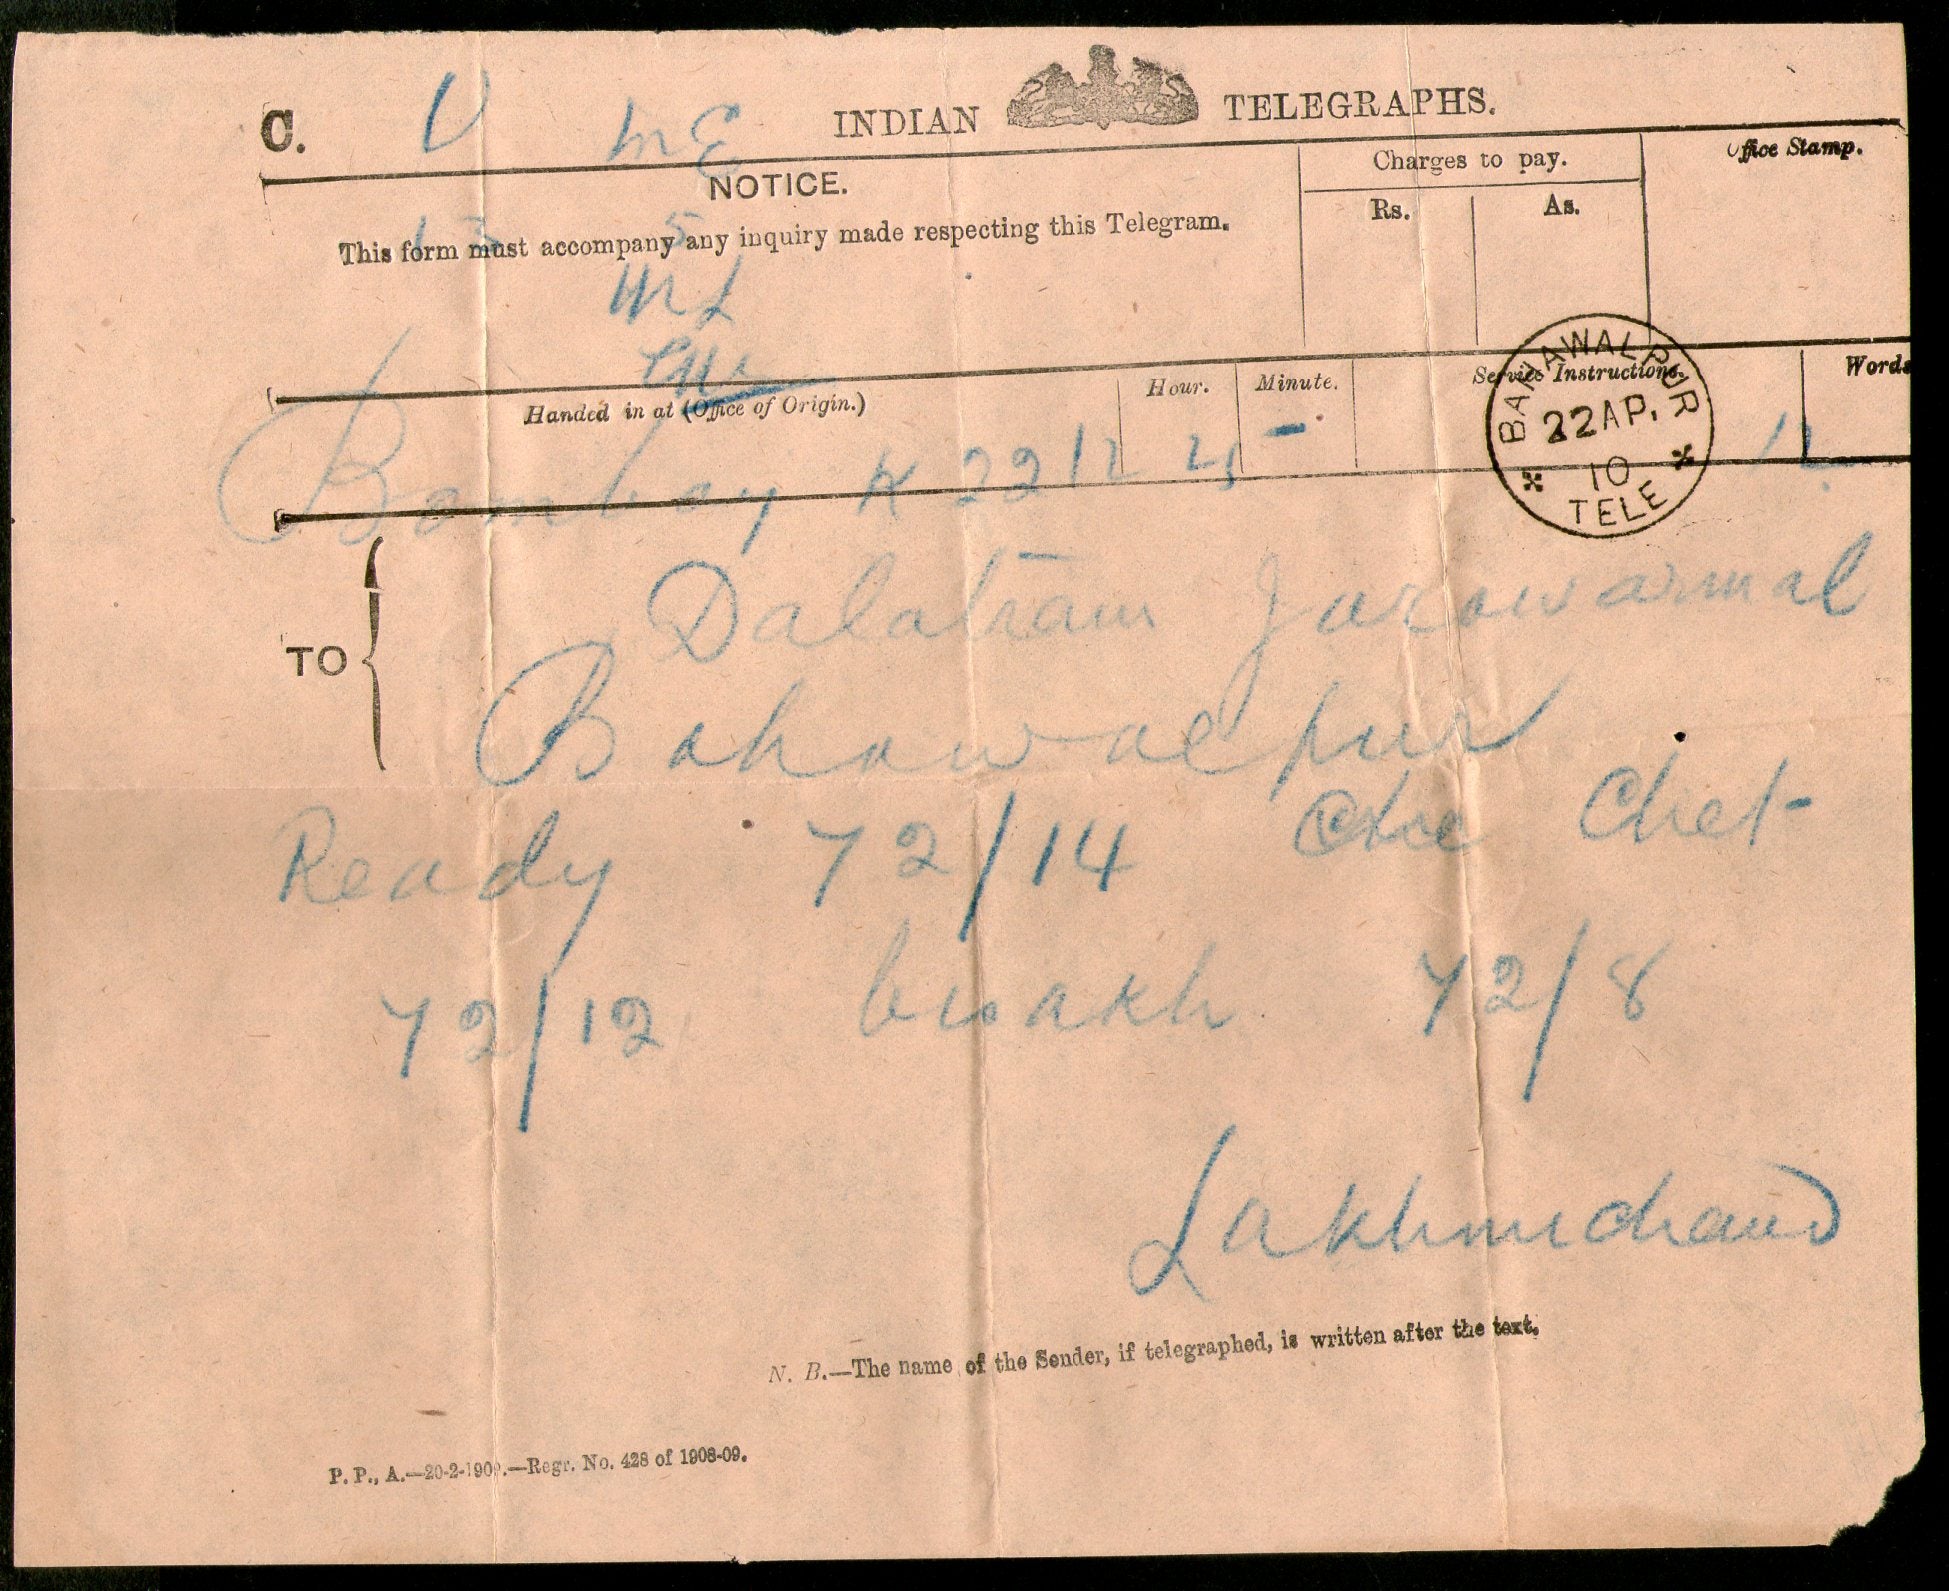 C. V mE INDIAN TELEGRAPHS.
NOTICE.
This form must accompany any inquiry made respecting this Telegram.
Charges to pay.
Rs. As.
Office Stamp.
13 5
Handed in at (Office of Origin.) Hour. Minute. Service Instructions. Words
BAHAWALPUR
22 AP.
10
TELE
Bombay K 22 12 4 - 12
TO
Dalatram Jorowarmal
Bahawalpur
Ready 72/14 Chet
72/12 bisakh 72/8
Lakhmichand
N. B.—The name of the Sender, if telegraphed, is written after the text.
P. P., A.—20-2-1909.—Regr. No. 428 of 1908-09.